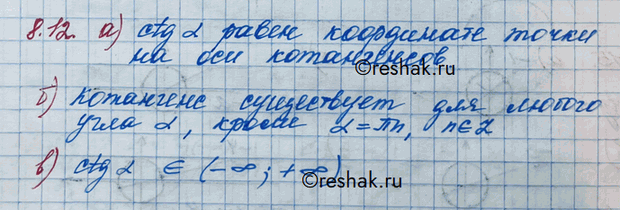 8.12. а) ctg α равен координате точки
на оси котангенсов
©reshak.ru
б) Котангенс существует для любого
угла α, кроме α = πn, n∈Z
в) ctg α ∈ (-∞; +∞)
©reshak.ru